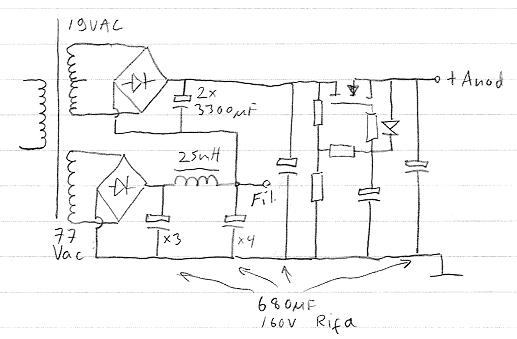 19VAC
2x
3300µF
+ Anod
25mH
Fil.
x3
x4
77
Vac
680µF
160V Rifa